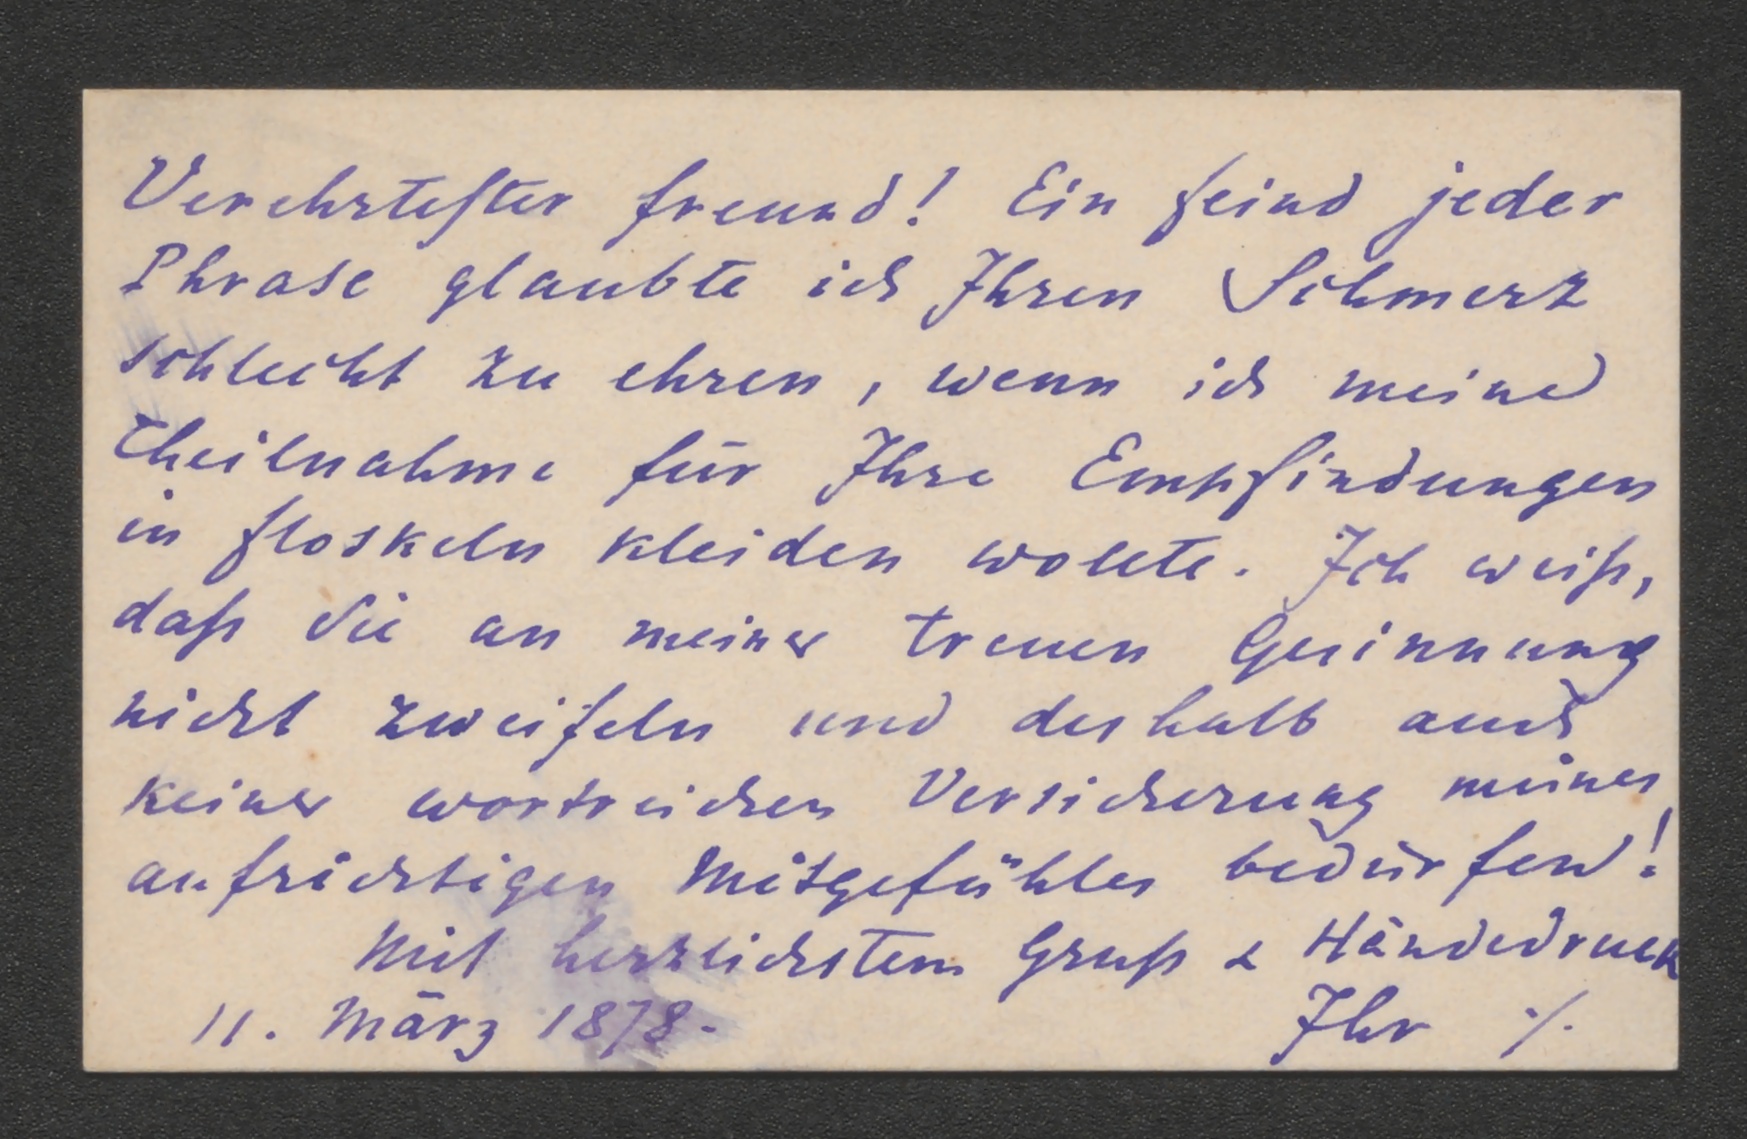 Verehrtester Freund! Ein Feind jeder
Phrase glaubte ich Ihren Schmerz
schlecht zu ehren, wenn ich meine
Theilnahme für Ihre Empfindungen
in Floskeln kleiden wollte. Ich weiß,
daß Sie an meiner treuen Gesinnung
nicht zweifeln und deshalb auch
keiner wortreichen Versicherung meines
aufrichtigen Mitgefühles bedürfen!
Mit herzlichstem Gruß & Händedruck
11. März 1878. Ihr ./.